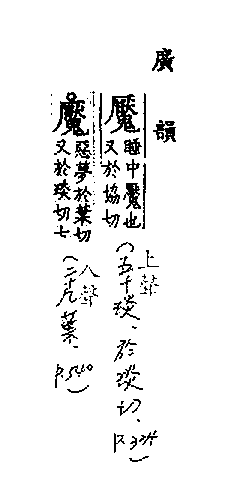 廣韻
魘 睡中魘也
又於協切
上聲
(五十琰、於琰切、
P.334)
魘 惡夢於葉切
又於琰切七
入聲
(二十九葉、
P.540)